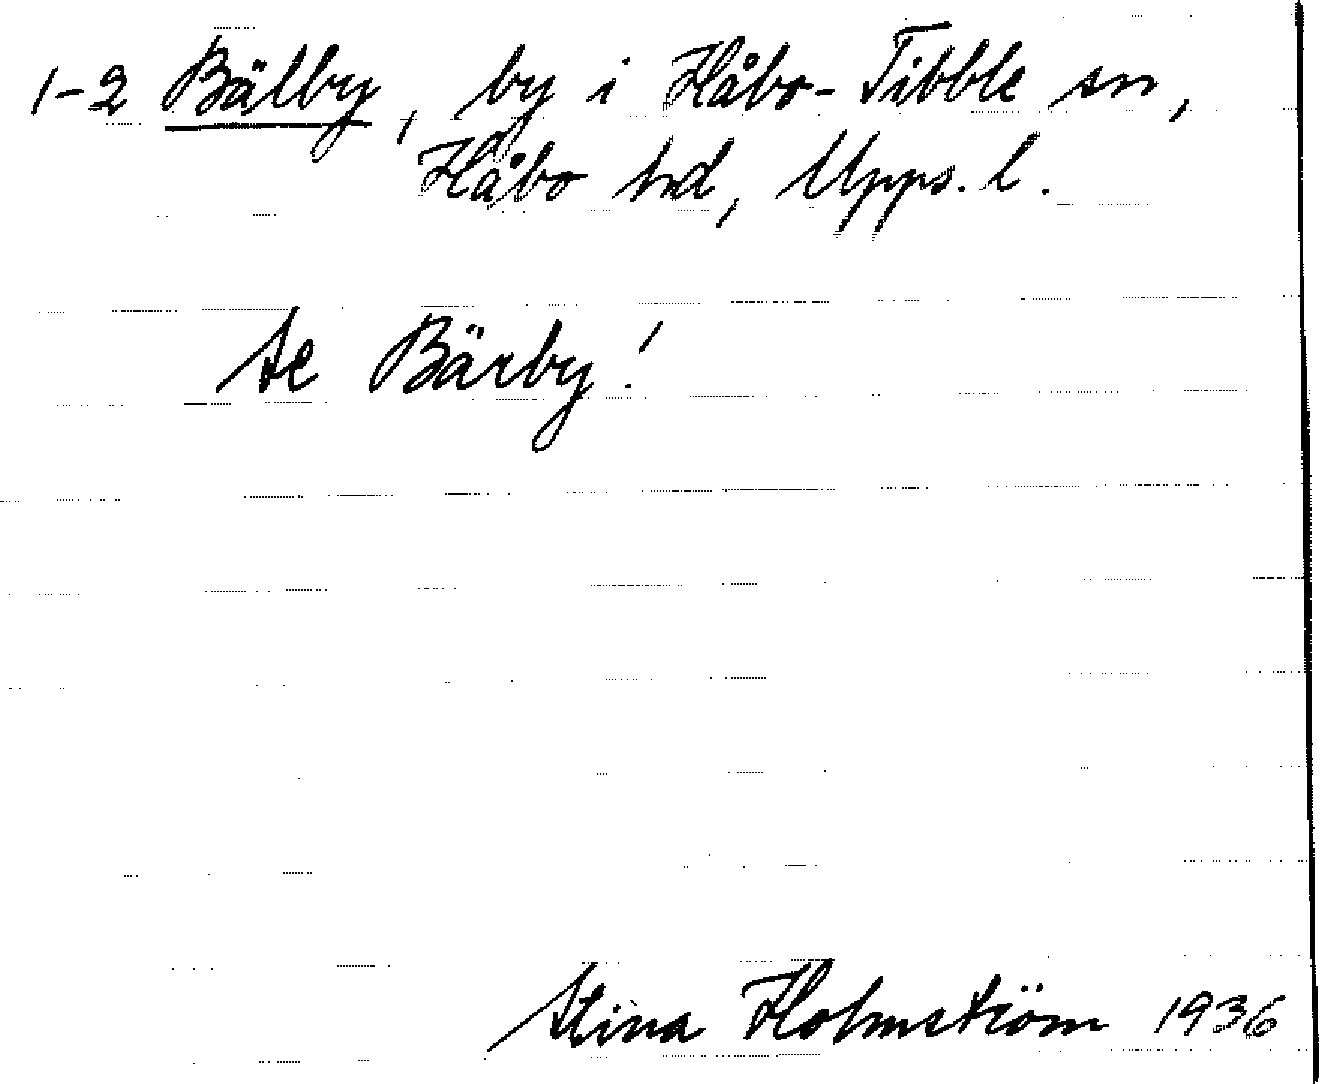 1-2 Bälby, by i Håbo-Tibble sn,
Håbo hd, Upps. l.
Se Bärby!
Stina Holmström 1936